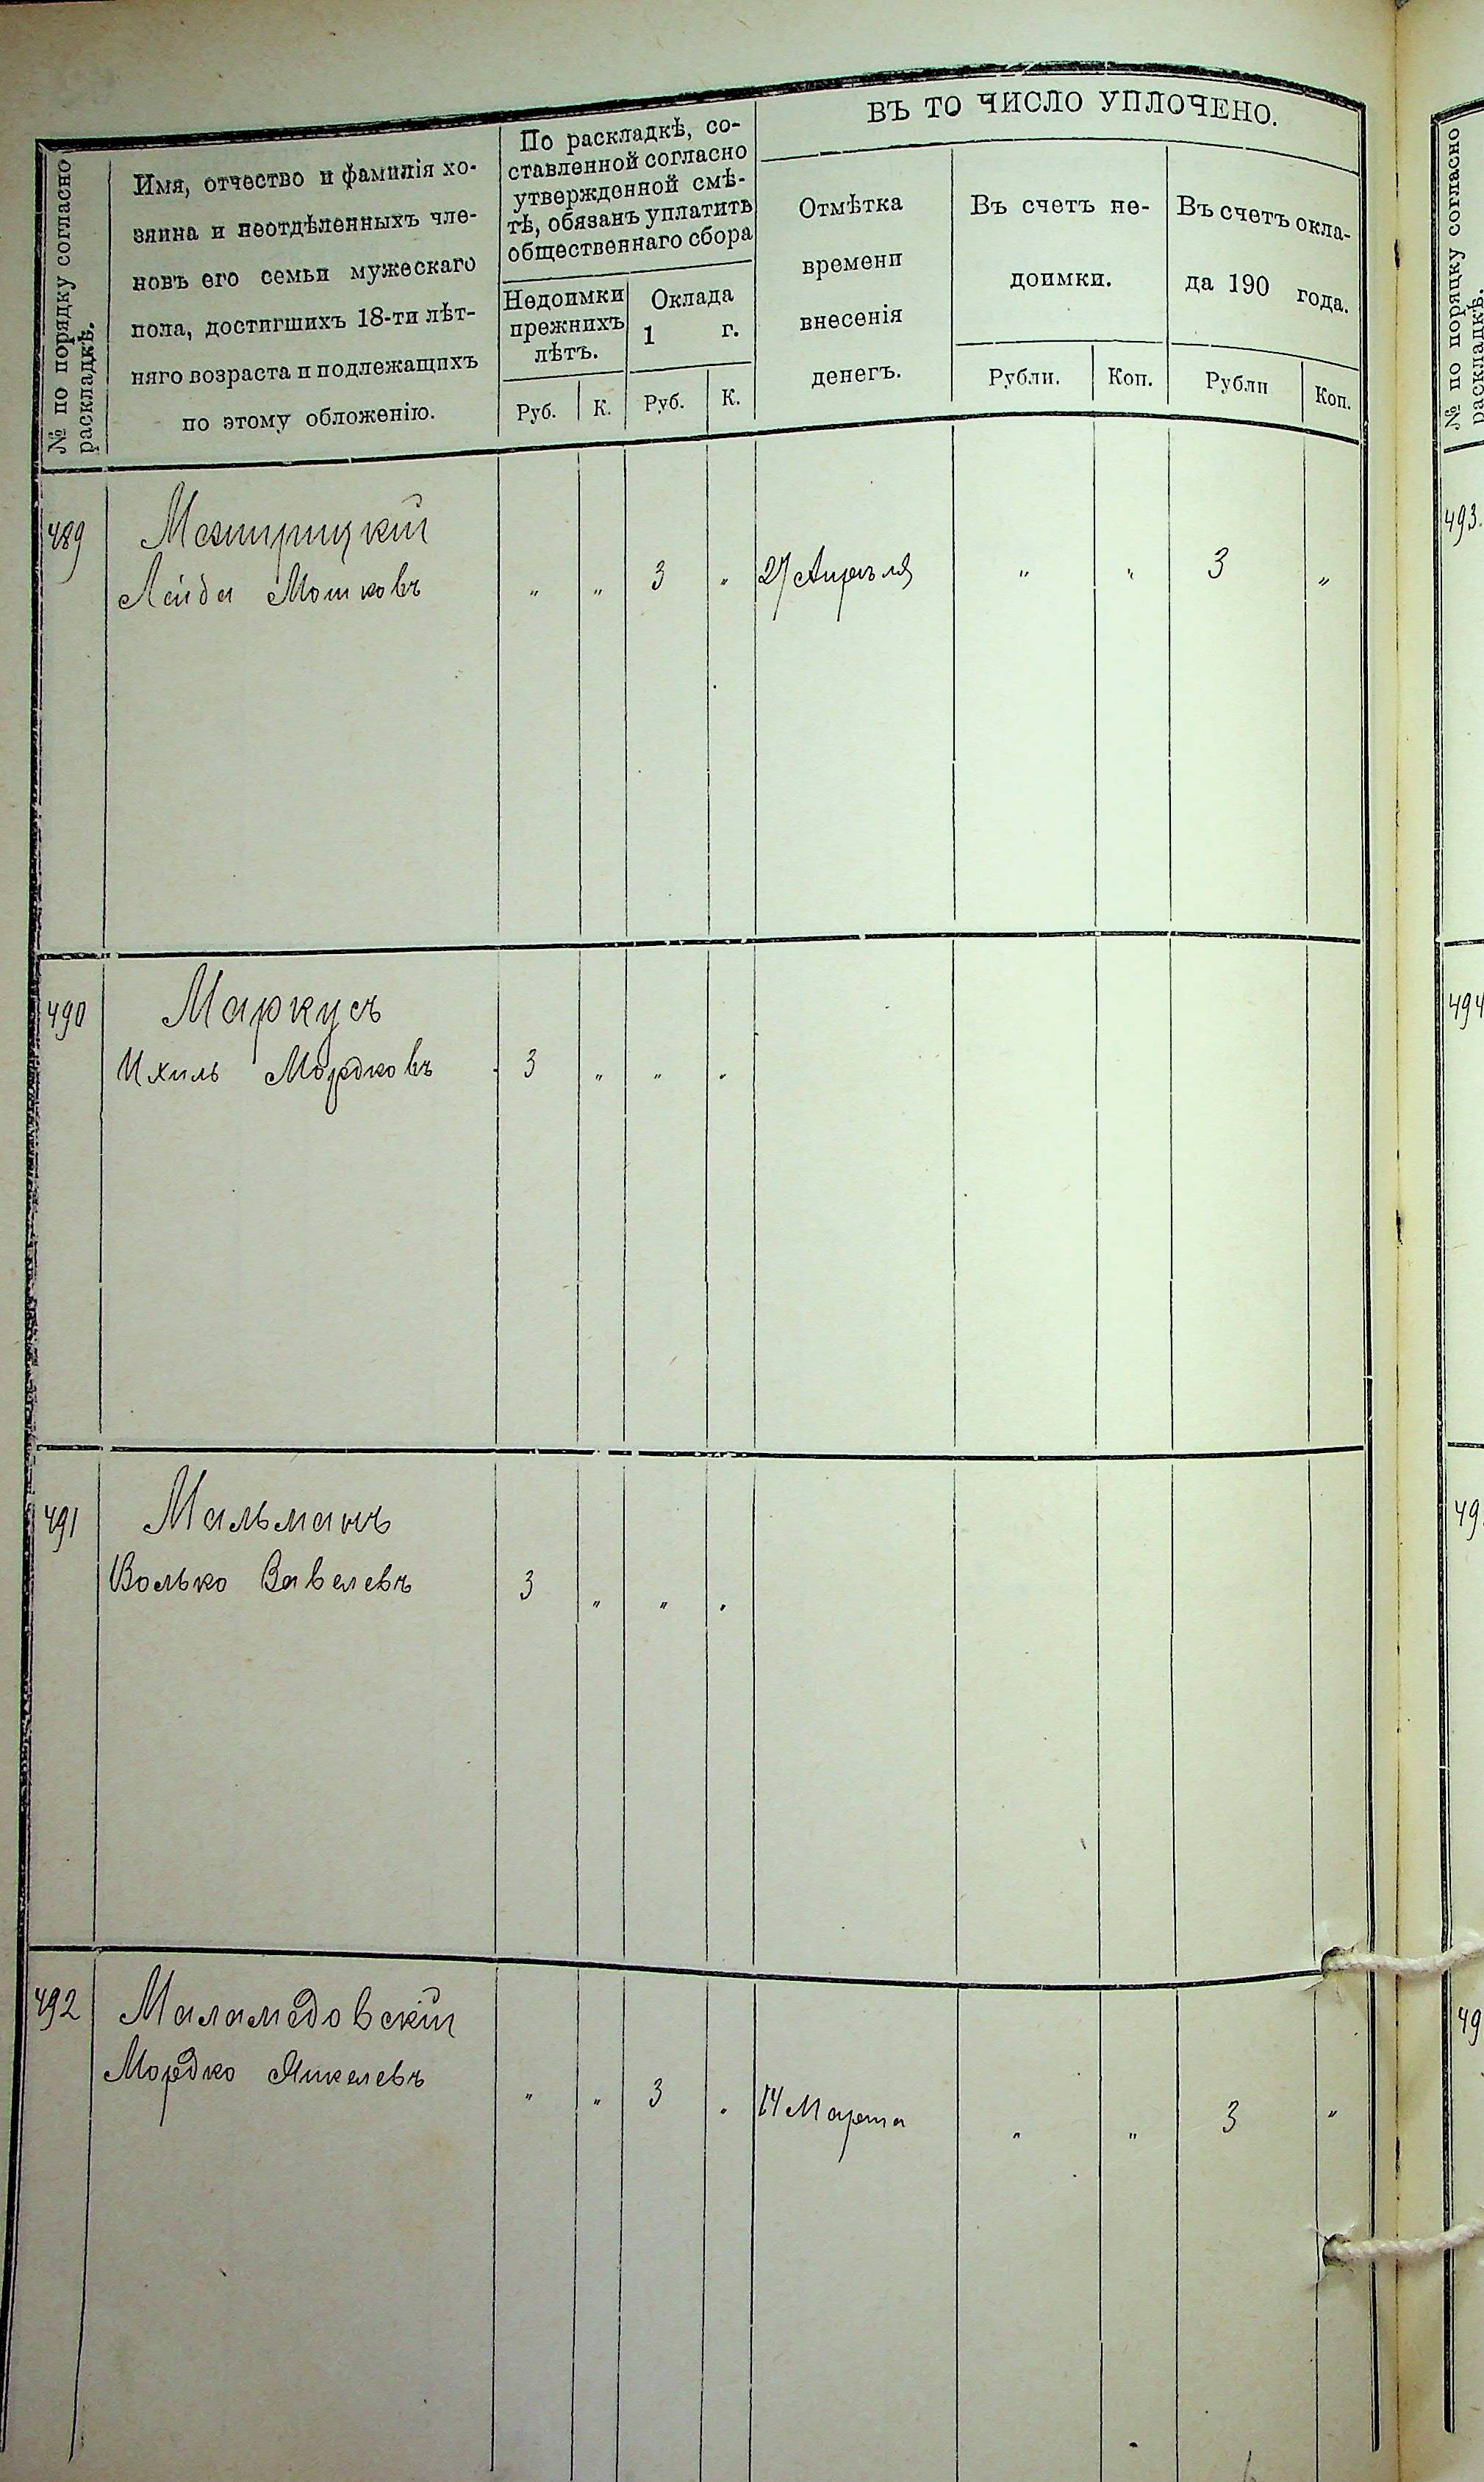 № по порядку согласно
раскладкѣ.
Имя, отчество и фамилія хо-
зяина и неотдѣленныхъ чле-
новъ его семьи мужескаго
пола, достигшихъ 18-ти лѣт-
няго возраста и подлежащихъ
по этому обложенію.
По раскладкѣ, со-
ставленной согласно
утвержденной смѣ-
тѣ, обязанъ уплатить
общественнаго сбора
Недоимки
прежнихъ
лѣтъ.
Оклада
1 г.
Руб. К. Руб. К.
ВЪ ТО ЧИСЛО УПЛОЧЕНО.
Отмѣтка
времени
внесенія
денегъ.
Въ счетъ не-
доимки.
Рубли. Коп.
Въ счетъ окла-
да 190 года.
Рубли Коп.
489 Мезирицкій
Лейба Мошковъ „ „ 3 „ 27 Апрѣля „ „ 3 „
490 Маркусъ
Ихиль Мордковъ 3 „ „ „
491 Мальманъ
Волько Вавелевъ 3 „ „ „
492 Маламедовскій
Мордко Янкелевъ „ „ 3 „ 14 Марта „ „ 3 „
№ по порядку согласно
раскладкѣ.
493.
494
49
49